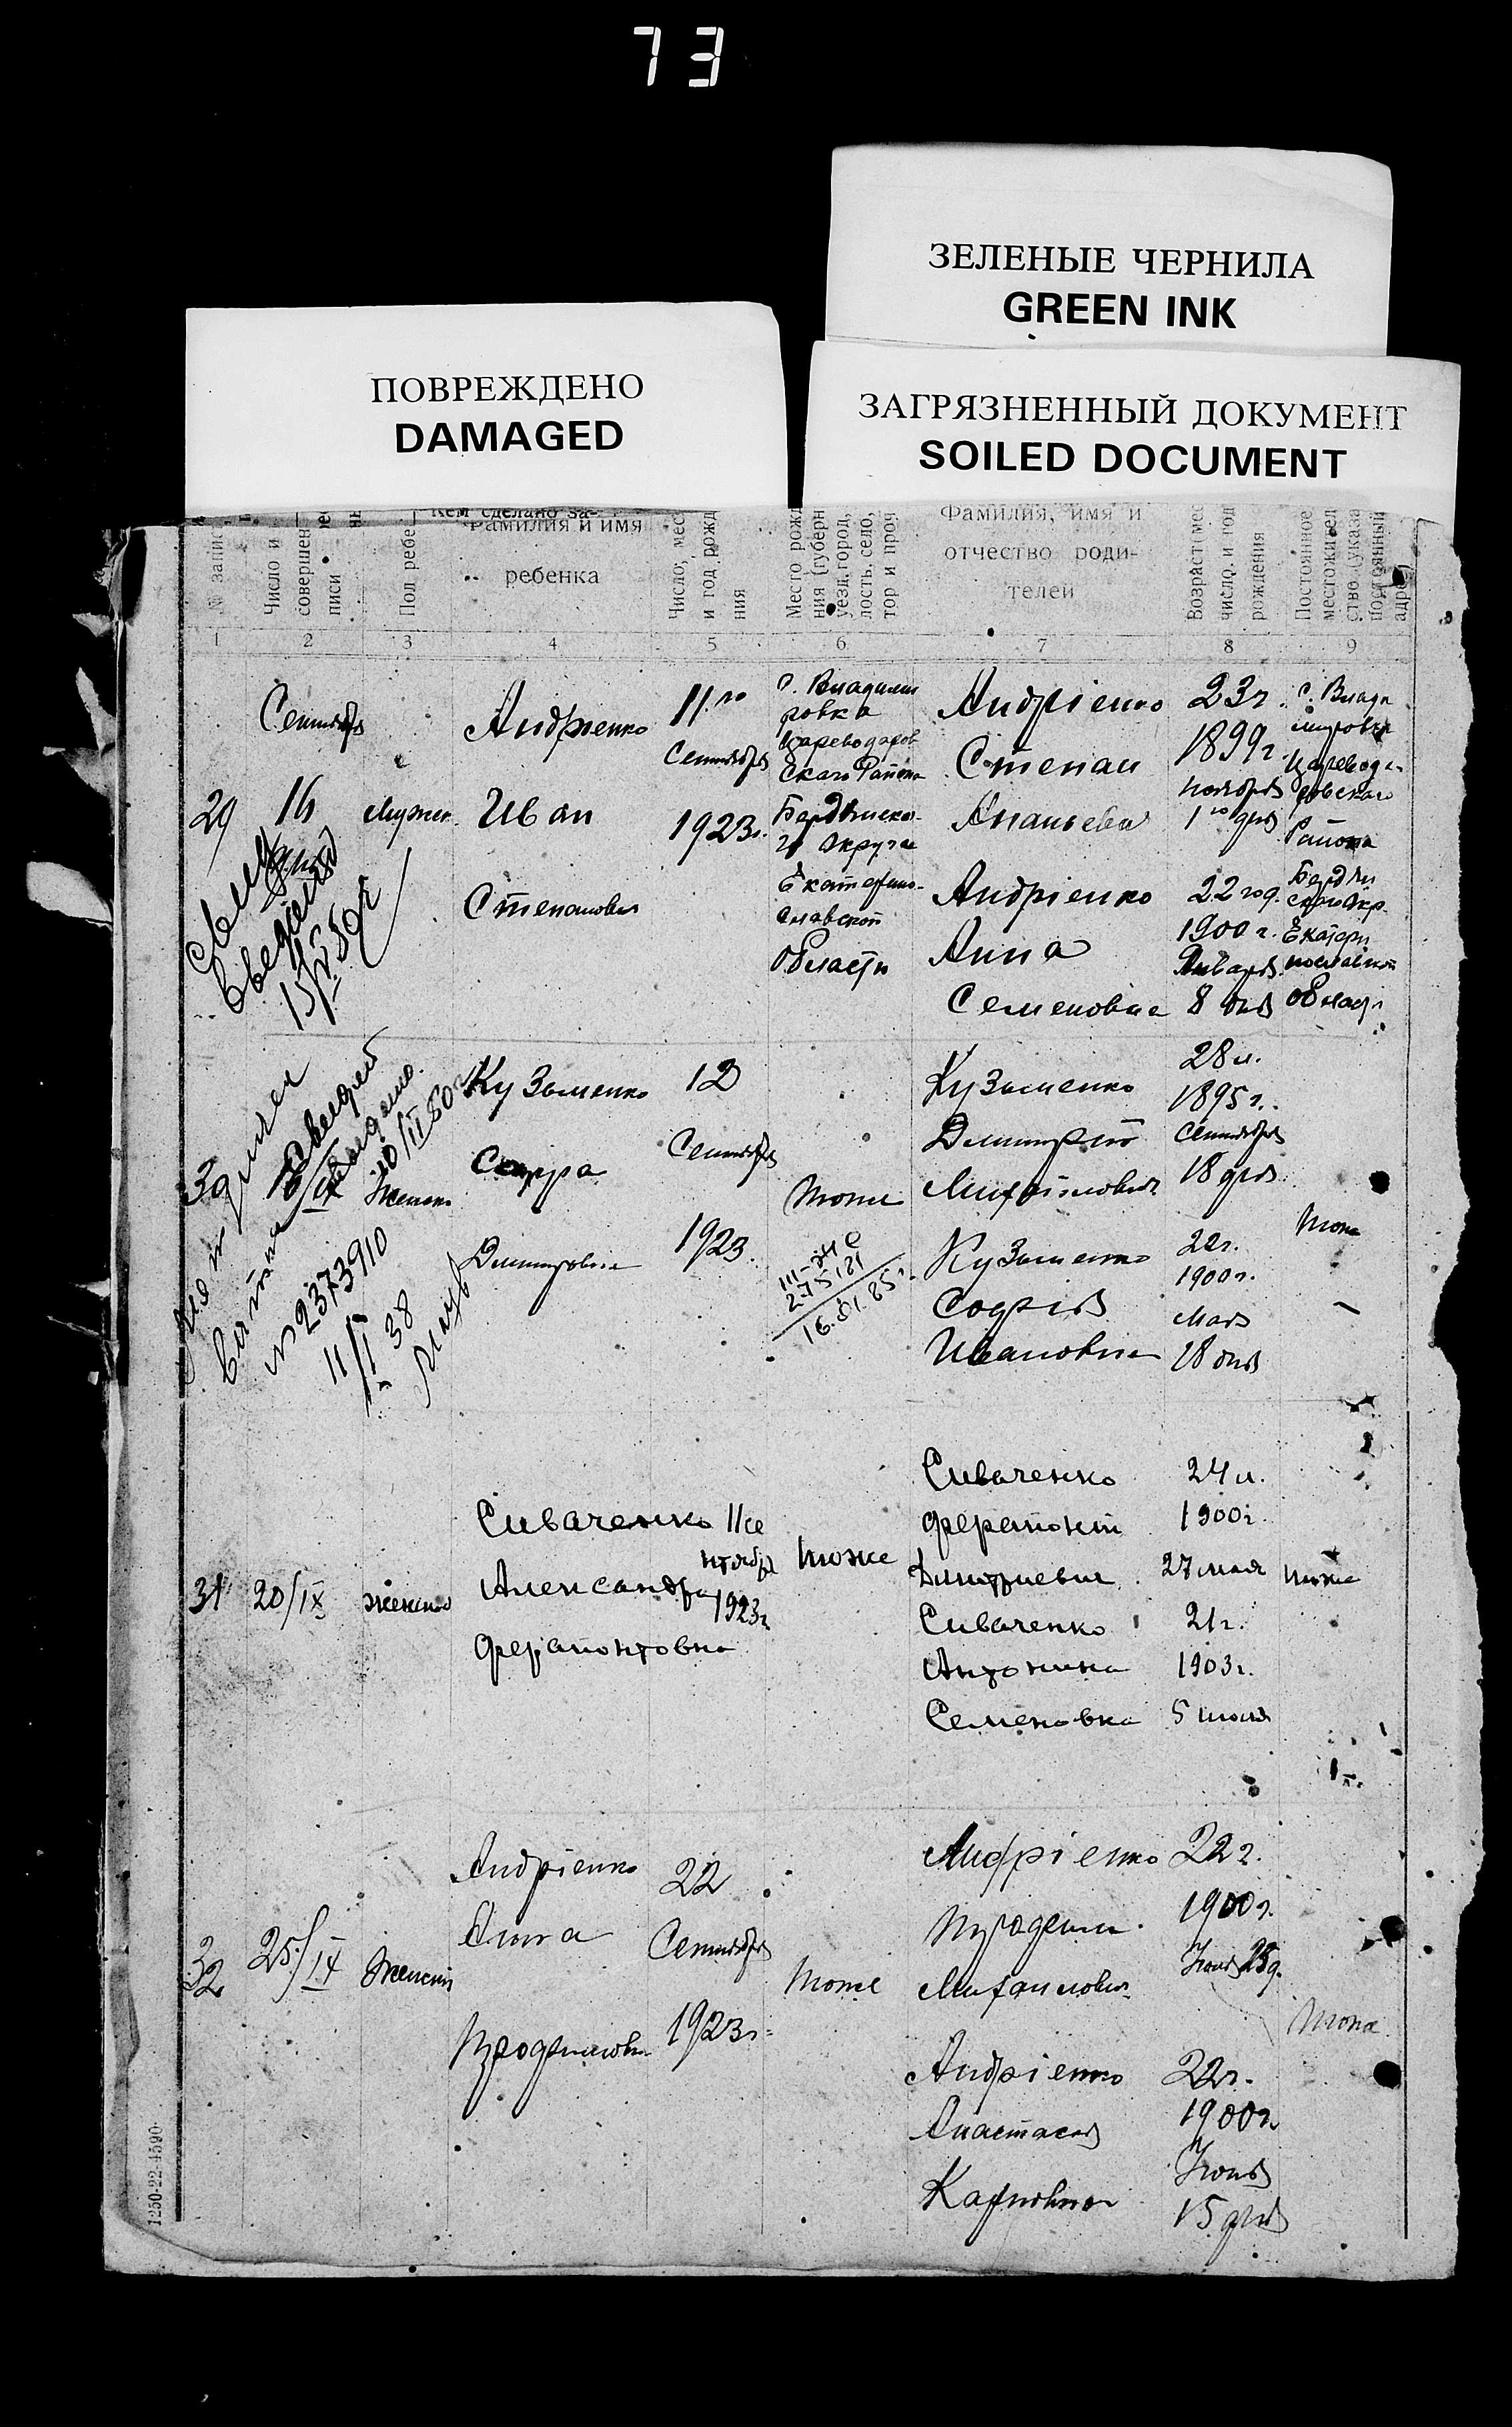 73
ЗЕЛЕНЫЕ ЧЕРНИЛА
GREEN INK
ПОВРЕЖДЕНО
DAMAGED
ЗАГРЯЗНЕННЫЙ ДОКУМЕНТ
SOILED DOCUMENT
№ запис
Число и
совершен
писи
Пол ребе
Кем сделано за-
Фамилия и имя
ребенка
Число, мес
и год рожд
ния
Место рожд
ния (губерн
уезд, город,
лость, село,
тор и проч
Фамилия, имя и
отчество роди-
телей
Возраст мес
число и год
рождения
Постоянное
местожител
ство (указа
постоянный
адрес
1 2 3 4 5 6 7 8 9
29
Сентябрь
16
Мужск.
Андріенко
Иван
Степанович
11го
Сентября
1923г.
с. Владими
ровка
Цареводаров
скаго Района
Бердянско-
го Округа
Екатерино-
славской
области
Андріенко
Степан
Ананьевич
Андріенко
Анна
Семеновна
23г.
1899г.
ноября
1го дня
22 год.
1900 г.
Января
8 дня
с. Влади
мировка
Царевода-
ровскаго
Района
Бердян
скаго Окр.
Екатери
нославской
област
30
Женск
Кузьменко
Димитровна
12
Сентября
1923.
тоже
III-ЖС
275181
16.01.85г.
Кузьменко
Димитрий
Михайлович
Кузьменко
Софія
Ивановна
28 л.
1895 г.
Сентября
18 дня
22г.
1900г.
Мая
18 дня
тоже
№ 2373910
11/I 38
31
20/IX
женский
Сиваченко
Александра
Ферапонтовна
11 се
нтября
1923г.
тоже
Сиваченко
Ферапонт
Дмитриевич
Сиваченко
Антонина
Семеновна
24 л.
1900г.
27 мая
21г.
1903г.
5 июля
тоже
32
25/IX
Женский
Андріенко
Анна
22
Сентября
1923г.
тоже
Андріенко
Михаилович
Андріенко
Анастасия
Карповна
22г.
1900г.
22г.
1900г.
15 дня
тоже
1250-22-4590